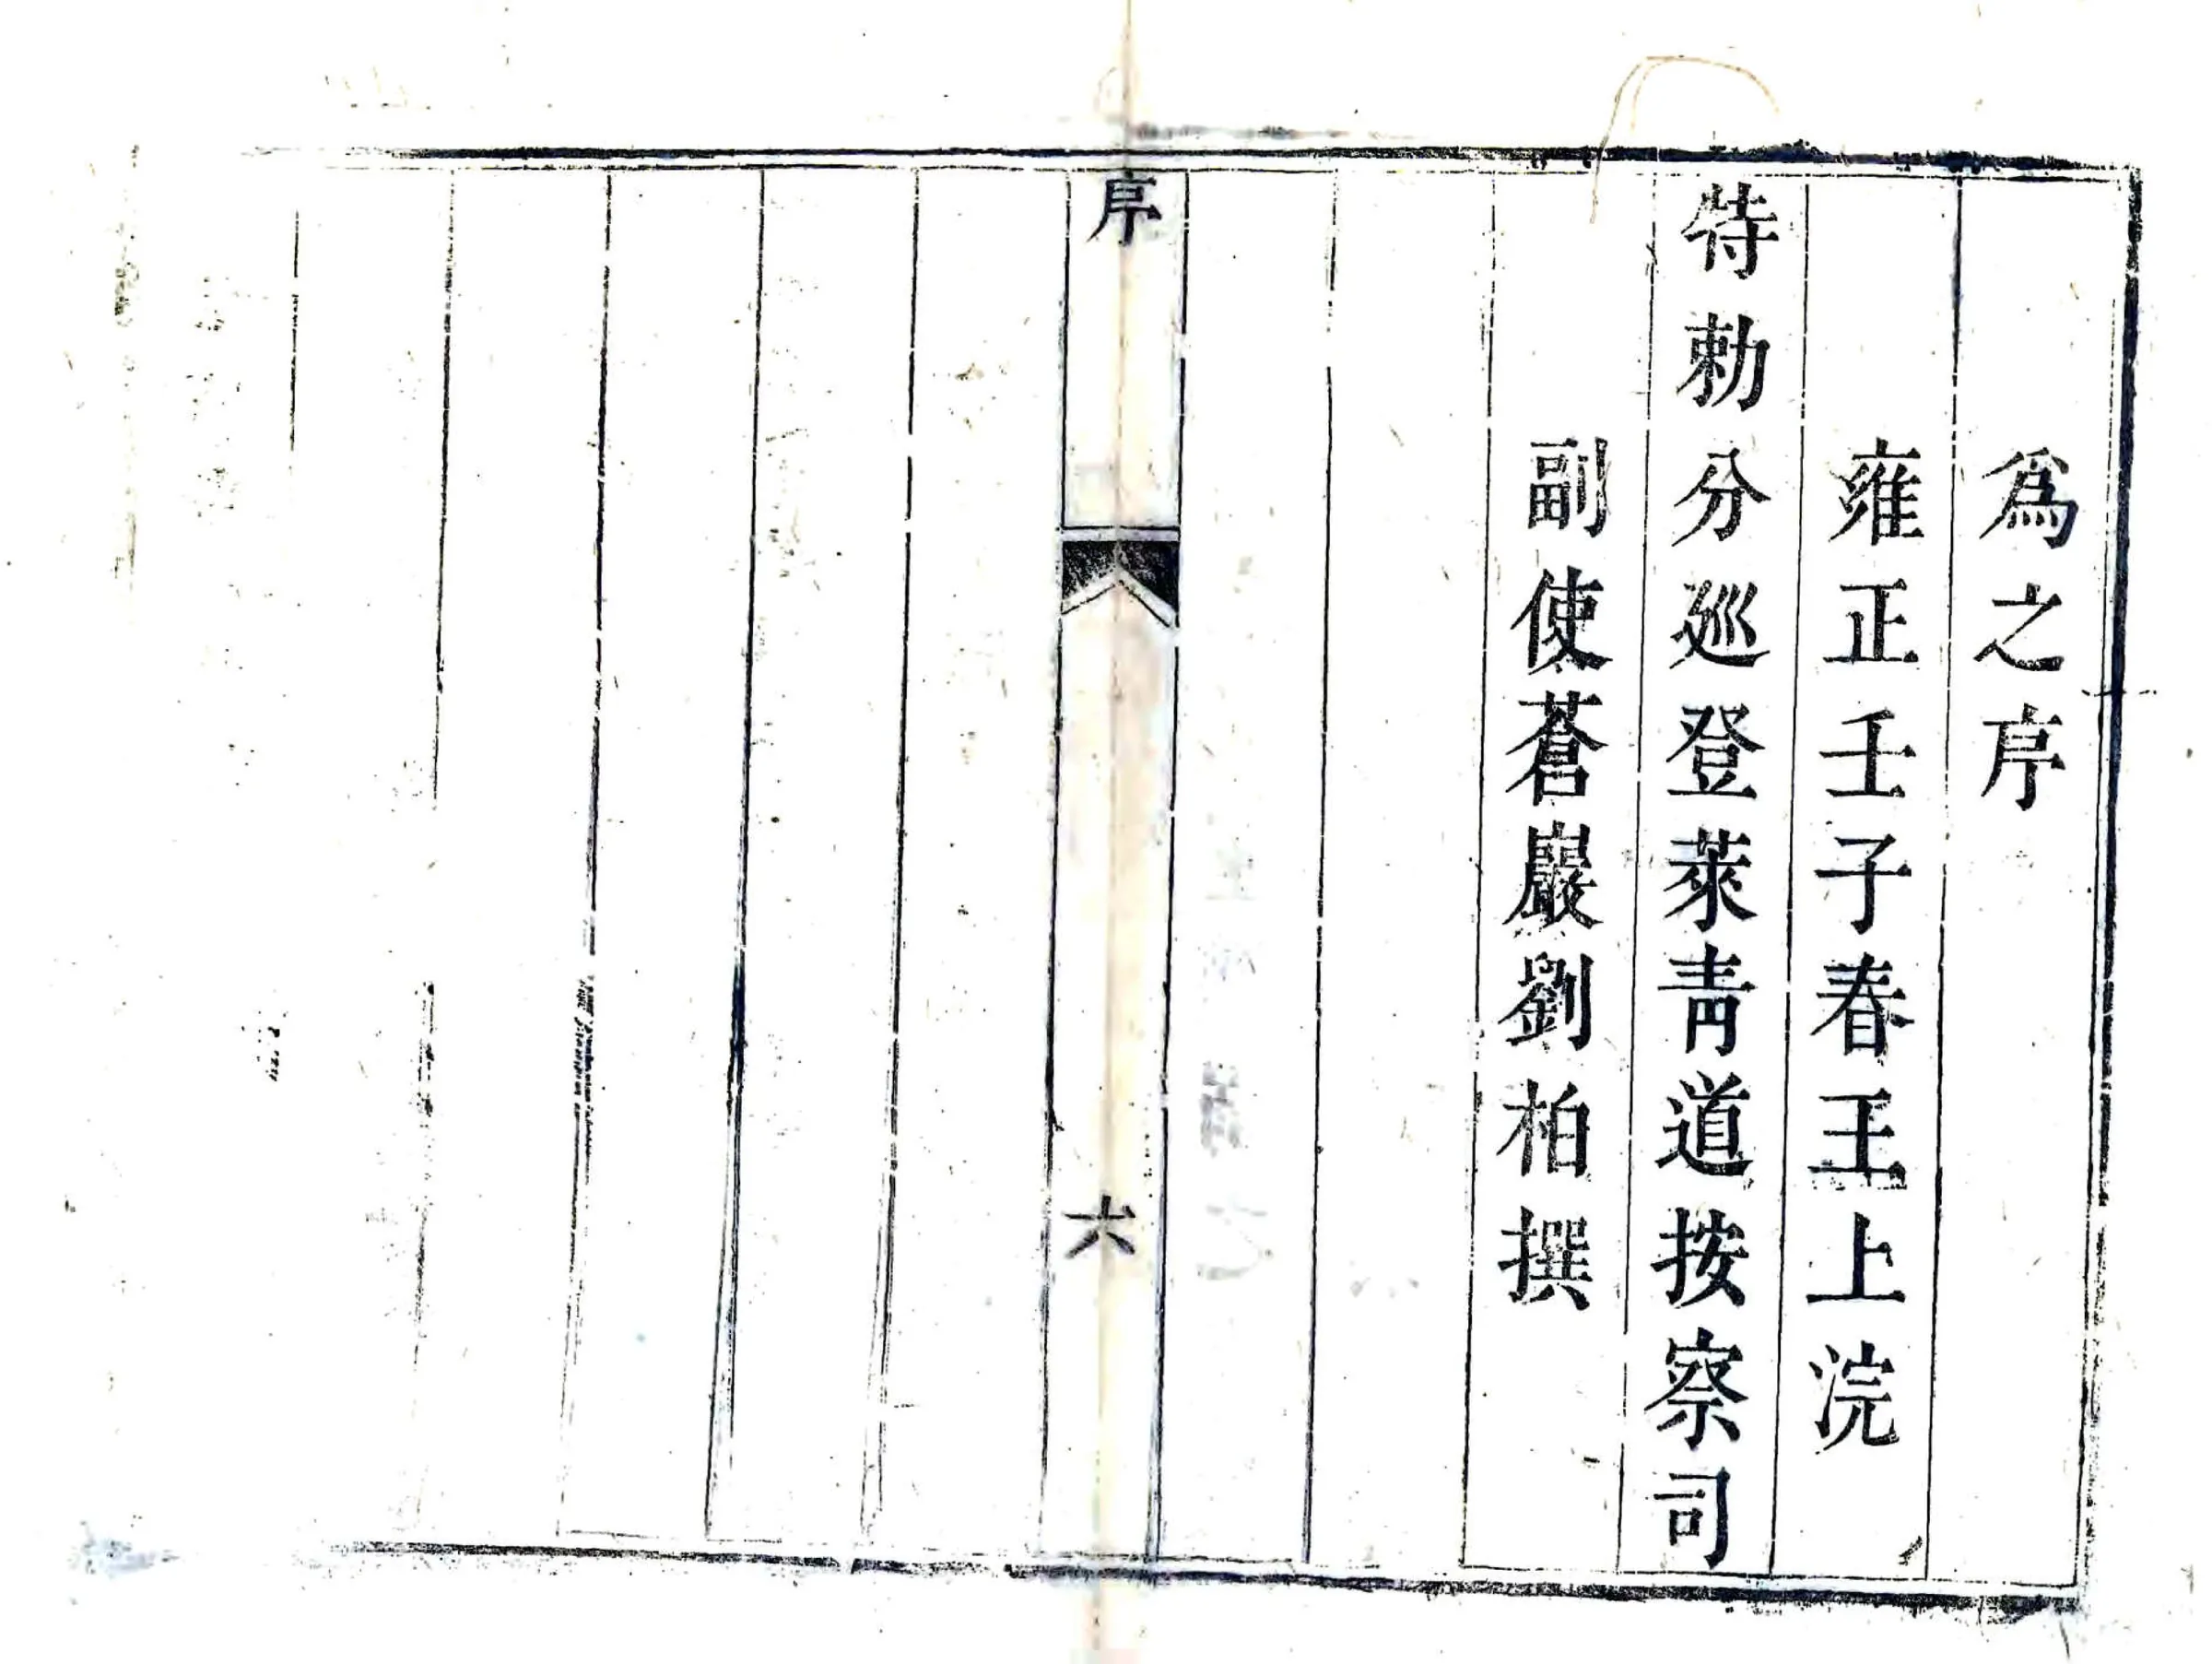 爲之序
雍正壬子春王上浣
特勅分廵登萊靑道按察司
副使蒼巖劉柏撰
序
六